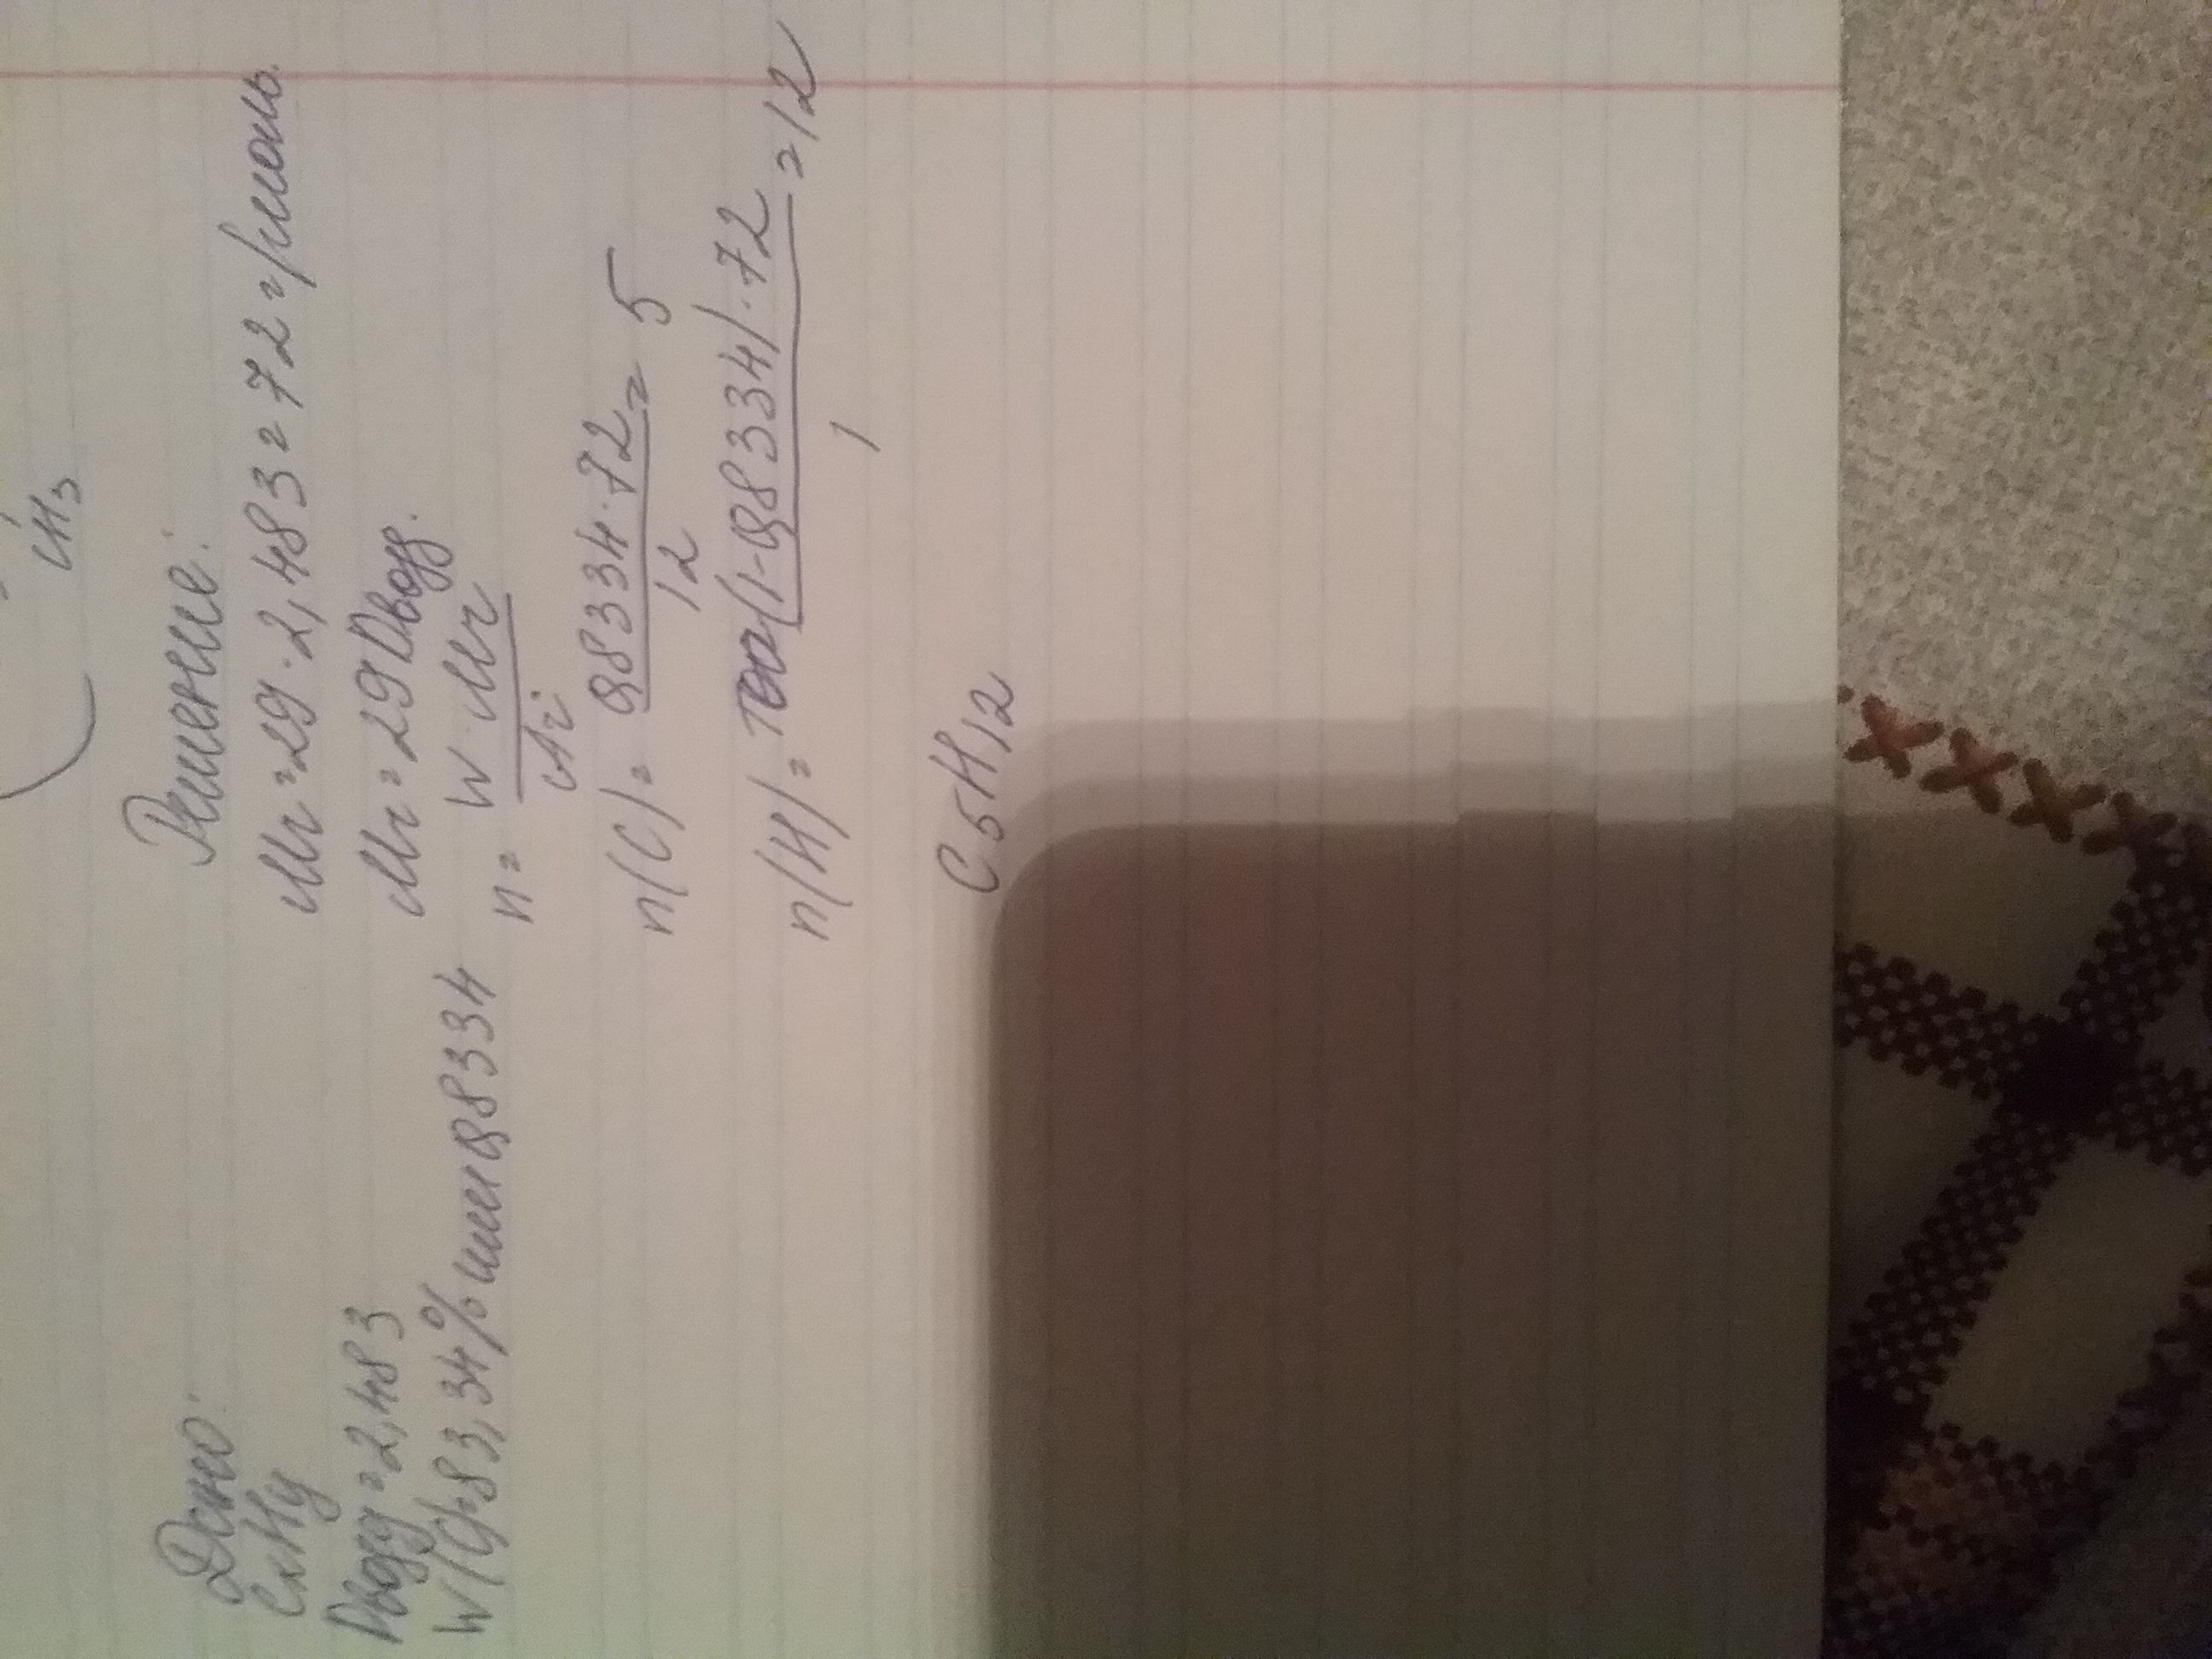 CH3
Дано:
CxHy
Dвозд = 2,483
W(C)=83,34% или 0,8334
Решение:
Mr = 29 · 2,483 = 72 г/моль.
Mr = 29 Dвозд.
n = W · Mr
Ar
n(C) = 0,8334 · 72 = 5
12
n(H) = (1-0,8334) · 72 = 12
1
C5H12